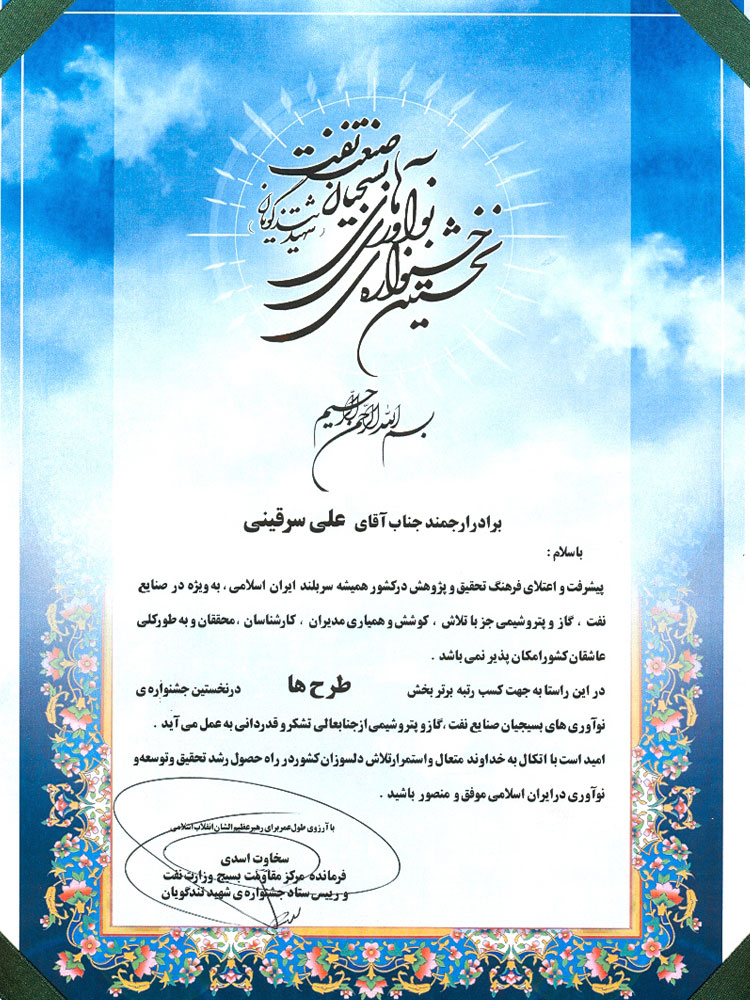 نخستین جشنواره ی
نوآوری های بسیجیان
صنعت نفت
(شهید تندگویان)
بسم الله الرحمن الرحیم
برادر ارجمند جناب آقای علی سرقینی
باسلام :
پیشرفت و اعتلای فرهنگ تحقیق و پژوهش درکشور همیشه سربلند ایران اسلامی ، به ویژه در صنایع
نفت ، گاز و پتروشیمی جز با تلاش ، کوشش و همیاری مدیران ، کارشناسان ، محققان و به طورکلی
عاشقان کشورامکان پذیر نمی باشد .
در این راستا به جهت کسب رتبه برتر بخش طرح ها درنخستین جشنواره ی
نوآوری های بسیجیان صنایع نفت ،گاز و پتروشیمی ازجنابعالی تشکر و قدردانی به عمل می آید .
امید است با اتکال به خداوند متعال و استمرارتلاش دلسوزان کشوردر راه حصول رشد تحقیق وتوسعه و
نوآوری درایران اسلامی موفق و منصور باشید .
با آرزوی طول عمر برای رهبر عظیم الشان انقلاب اسلامی
سخاوت اسدی
فرمانده مرکز مقاومت بسیج وزارت نفت
و رییس ستاد جشنواره ی شهید تندگویان